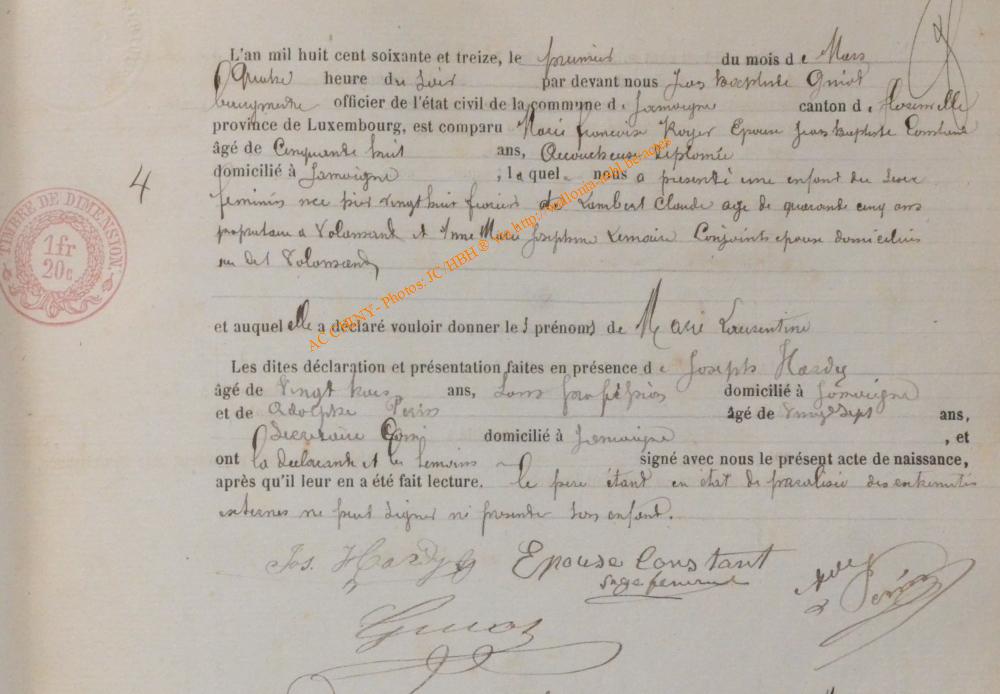 L'an mil huit cent soixante et treize, le premier du mois de Mars
Quatre heure du Soir par devant nous Jean Baptiste Guiot
bourgmestre officier de l'état civil de la commune de Jamoigne canton de Florenville
province de Luxembourg, est comparu Marie francoise Royer Epouse Jean Baptiste Constant
âgé de Cinquante huit ans, Accoucheuse diplomée
domicilié à Jamoigne, laquelle nous a presenté une enfant du sexe
4
feminin nee hier vingt huit fevrier de Lambert Claude age de quarante cinq ans
TIMBRE DE DIMENSION.
1 fr
20 c
propriétaire a Valansart et Anne Marie Josephine Lemaire Conjoints epoux domiciliés
au dit Valansart
et auquel elle a déclaré vouloir donner les prénoms de Marie Laurentine
Les dites déclaration et présentation faites en présence de Joseph Hardy
âgé de vingt trois ans, Sans profession domicilié à Jamoigne
et de Adolphe Perin âgé de vingt sept ans,
Secretaire Comi domicilié à Jamoigne, et
ont la declarante et les temoins signé avec nous le présent acte de naissance,
après qu'il leur en a été fait lecture. le pere étant en état de paralisie des extremités
externes ne peut signer ni presenter son enfant.
Jos. Hardy Epouse Constant
sage femme
Adolphe Périn
Guiot
AC CHINY - Photos: JC HBH ® via http://